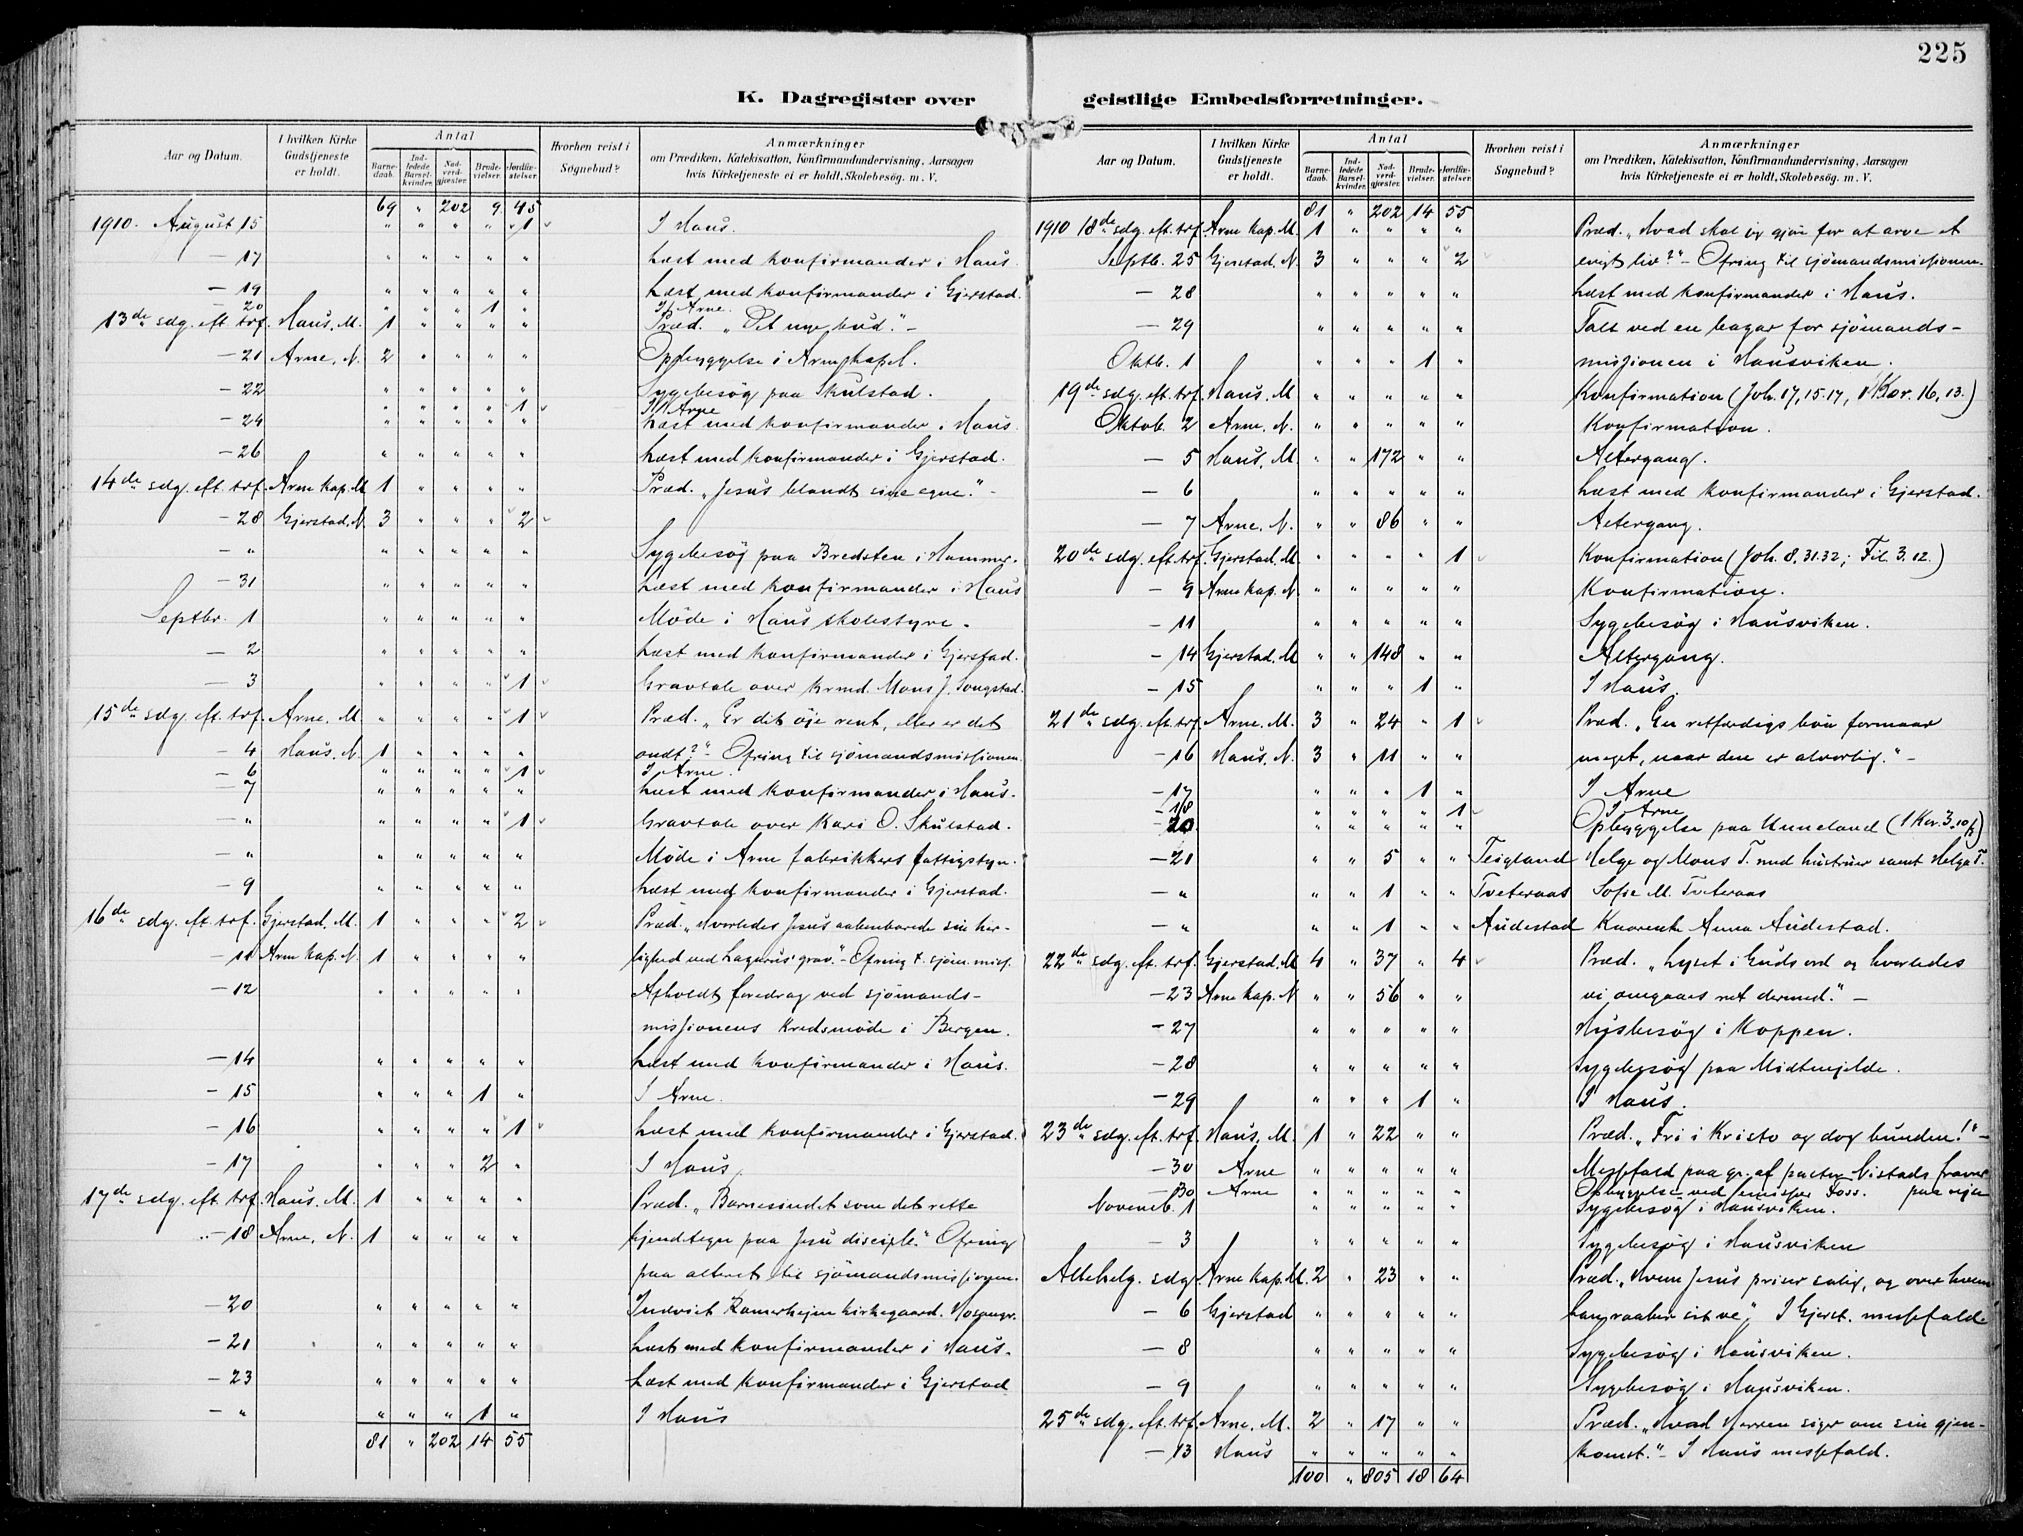 225
K. Dagregister over geistlige Embedsforretninger.
Aar og Datum. I hvilken Kirke Gudstjeneste er holdt. Antal Barnedaab. Indledede Barselkvinder. Nadverdgjæster. Brudevielser. Jordfæstelser. Hvorhen reist i Sognebud? Anmærkninger om Prædiken, Katekisation, Konfirmandundervisning, Aarsagen hvis Kirketjeneste ei er holdt, Skolebesøg. m. V.
69 " 202 9 45
1910. August 15 " " " " 1 I Haus.
— 17 " " " " " Læst med konfirmander i Haus.
— 19 " " " " " Læst med konfirmander i Gjerstad.
— 20 " " " 1 " I Arne.
13de sdg. eft. trf. Haus. M. 1 " " " " Præd. "Det nye bud." —
— 21 Arne, N. 2 " " " " Opbyggelse i Arne kapel.
— 22 " " " " " Sygebesøg paa Skulstad.
" " " " 1 I Arne
— 24 " " " " " Læst med konfirmander i Haus.
— 26 " " " " " Læst med konfirmander i Gjerstad.
14de sdg. eft. trf. Arne kap. M 1 " " " " Præd. "Jesus blandt sine egne." —
— 28 Gjerstad. N. 3 " " " 2
— " " " " " " Sygebesøg paa Bredsten i Hammer.
— 31 " " " " " Læst med konfirmander i Haus
Septbr. 1 " " " " " Møde i Haus skolestyre.
— 2 " " " " " Læst med konfirmander i Gjerstad.
— 3 " " " " 1 Gravtale over krmd. Mons J. Songstad.
15de sdg. eft. trf. Arne. M. " " " " 1 Præd. "Er dit øie rent, eller er det
— 4 Haus. N. 1 " " " " ondt?" Ofring til sjømandsmissionen.
— 6 " " " " 1 I Arne.
— 7 " " " " " Læst med konfirmander i Haus.
— " " " " " 1 Gravtale over Kari O. Skulstad.
— " " " " " " Møde i Arne fabrikkers fattigstyre.
— 9 " " " " " Læst med konfirmander i Gjerstad.
16de sdg. eft. trf. Gjerstad. M. 1 " " " 2 Præd. "Hvorledes Jesus aabenbarede sin her-
— 11 Arne kap. N. 1 " " " " lighed ved Lazarus' grav." — Ofring t. sjøm. miss.
— 12 " " " " " Afholdt foredrag ved sjømands-
missionens kredsmøde i Bergen.
— 14 " " " " " Læst med konfirmander i Haus.
— 15 " " " 1 " I Arne.
— 16 " " " " 1 Læst med konfirmander i Gjerstad.
— 17 " " " 2 " I Haus.
17de sdg. eft. trf. Haus. M. 1 " " " " Præd. "Barnesindet som det rette
— 18 Arne, N. 1 " " " " kjendetegn paa Jesu disciple." Ofring
paa alteret til sjømandsmissionen.
— 20 " " " " " Indviet Ramerhejm kirkegaard. Hosanger.
— 21 " " " " " Læst med konfirmander i Haus.
— 23 " " " " " Læst med konfirmander i Gjerstad
— " " " " 1 " I Haus
81 " 202 14 55
Aar og Datum. I hvilken Kirke Gudstjeneste er holdt. Antal Barnedaab. Indledede Barselkvinder. Nadverdgjæster. Brudevielser. Jordfæstelser. Hvorhen reist i Sognebud? Anmærkninger om Prædiken, Katekisation, Konfirmandundervisning, Aarsagen hvis Kirketjeneste ei er holdt, Skolebesøg. m. V.
81 " 202 14 55
1910 18de sdg. eft. trf. Arne kap. M. 1 " " " " Præd. "Hvad skal jeg gjøre for at arve et
Septb. 25 Gjerstad. N. 3 " " " 2 evigt liv?" — Ofring til sjømandsmissionen.
— 28 " " " " " Læst med konfirmander i Haus.
— 29 " " " " " Talt ved en bazar for sjømands-
Oktb. 1 " " " 1 " missionen i Hausviken.
19de sdg. eft. trf. Haus. M " " " " " Konfirmation (Joh. 17, 15.17, 1 Kor. 16, 13.)
Oktob. 2 Arne. N. " " " " " Konfirmation.
— 5 Haus. M " " 172 " " Altergang.
— 6 " " " " " Læst med konfirmander i Gjerstad.
— 7 Arne. N. " " 86 " " Altergang.
20de sdg. eft. trf. Gjerstad. M. " " " " 1 Konfirmation (Joh. 8, 31.32; Fil. 3, 12.)
— 9 Arne kap. N. " " " " " Konfirmation.
— 11 " " " " " Sygebesøg i Hausviken.
— 14 Gjerstad. M " " 148 " " Altergang.
— 15 " " " 1 " I Haus.
21de sdg. eft. trf. Arne. M. 3 " 24 " 1 Præd. "En retfærdigs bøn formaar
— 16 Haus. N. 3 " 11 " " meget, naar den er alvorlig." —
— 17 " " " 1 " I Arne
— 18 " " " " 1 I Arne
— 20 " " " " " Opbyggelse paa Unneland (1 Kor. 3, 10 f)
— 21 " " 5 " " Teigland Helge og Mons T. med hustruer samt Helga T.
— " " " 1 " " Tveteraas Sofie M. Tveteraas
— " " " 1 " " Audestad Knarente Anna Audestad.
22de sdg. eft. trf. Gjerstad. M 4 " 37 " 4 Præd. "Lyset i Guds ord og hvorledes
— 23 Arne kap. N " " 56 " " vi omgaaes ret dermed." —
— 27 " " " " " Husbesøg i Koppen.
— 28 " " " " " Sygebesøg paa Midtmjelde.
— 29 " " " 1 " I Haus.
23de sdg. eft. trf. Haus. M. 1 " 22 " " Præd. "Fri i Kristo og dog bunden!" —
— 30 Arne " " " " " Messefald paa gr. af pastor Nistads fravær
— 30 Arne " " " " " Opbyggelse ved Foss. paa reise
Novemb. 1 " " " " " Sygebesøg i Hausviken.
— 3 " " " " " Sygebesøg i Hausviken
Allehelg. sdg. Arne kap. M. 2 " 23 " " Præd. "Hvem Jesus priser salig, og over hvem
— 6 Gjerstad " " " " " han raaber sit ve". I Gjerst. messefald.
— 8 " " " " " Sygebesøg i Hausviken.
— 9 " " " " " Sygebesøg i Hausviken.
25de sdg. eft. trf. Arne. M. 2 " 17 " " Præd. "Hvad Herren siger om sin gjen-
— 13 Haus " " " " " komst." — I Haus messefald.
100 " 805 18 64